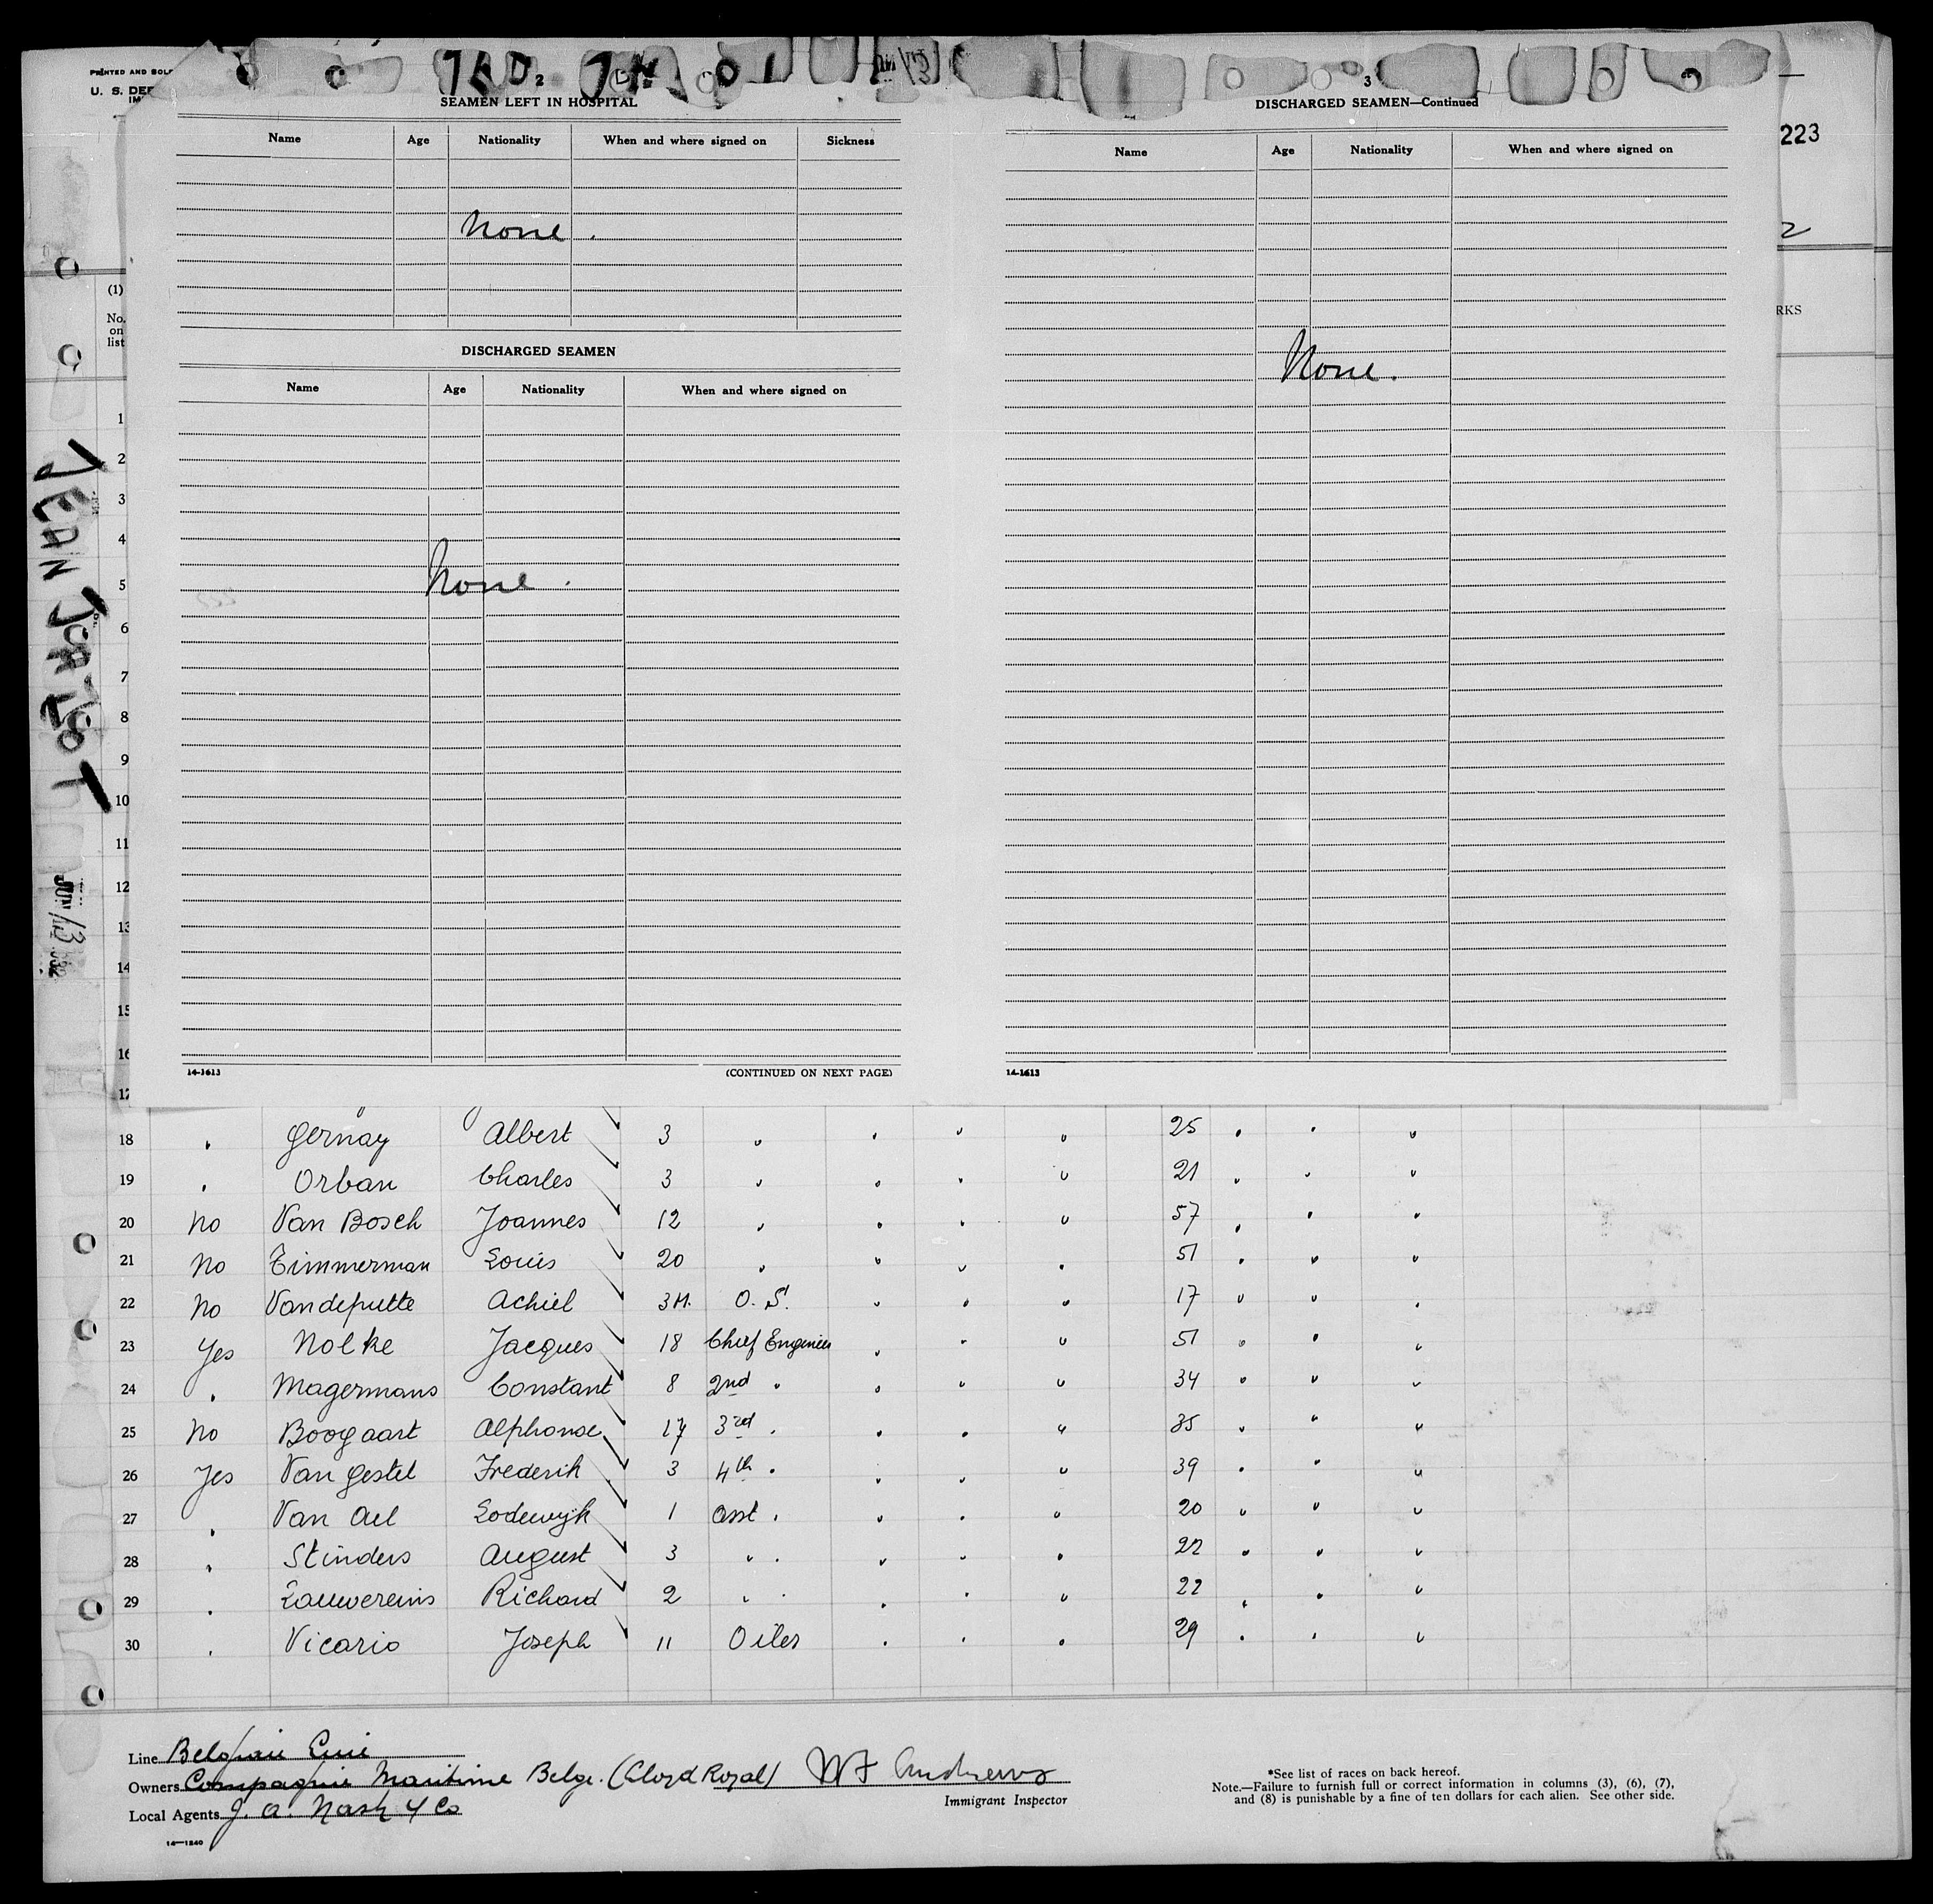 PRINTED AND SOLD
U. S. DEP
IM
2
SEAMEN LEFT IN HOSPITAL
Name Age Nationality When and where signed on Sickness
None .
DISCHARGED SEAMEN
Name Age Nationality When and where signed on
None .
14-1613 (CONTINUED ON NEXT PAGE)
3
DISCHARGED SEAMEN—Continued
Name Age Nationality When and where signed on
None.
14-1613
223
2
RKS
(1)
No.
on
list
1
2
3
4
5
6
7
8
9
10
11
12
13
14
15
16
17
JEAN JADOT
JUN 13 1932
18 " Gernay Albert 3 " " " " 25 " " "
19 " Orban Charles 3 " " " " 21 " " "
20 No Van Bosch Joannes 12 " " " " 57 " " "
21 No Timmerman Louis 20 " " " " 51 " " "
22 No Vandeputte Achiel 3M. O. S. " " " 17 " " "
23 Yes Nolke Jacques 18 Chief Engineer " " " 51 " " "
24 " Magermans Constant 8 2nd " " " " 34 " " "
25 No Boogaart Alphonse 17 3rd " " " " 35 " " "
26 Yes Van Gestel Frederik 3 4th " " " " 39 " " "
27 " Van Ael Lodewijk 1 Asst " " " " 20 " " "
28 " Stinders August 3 " " " " " 22 " " "
29 " Lauwereins Richard 2 " " " " " 22 " " "
30 " Vicario Joseph 11 Oiler " " " 29 " " "
Line Belgian Line
Owners Compagnie Maritime Belge. (Lloyd Royal) W F Andrews
Immigrant Inspector
Local Agents J. A. Nash & Co
14—1240
*See list of races on back hereof.
Note.—Failure to furnish full or correct information in columns (3), (6), (7),
and (8) is punishable by a fine of ten dollars for each alien. See other side.